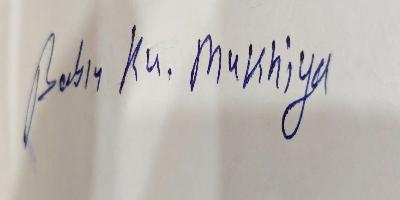 Babin Ku. Mukhiya